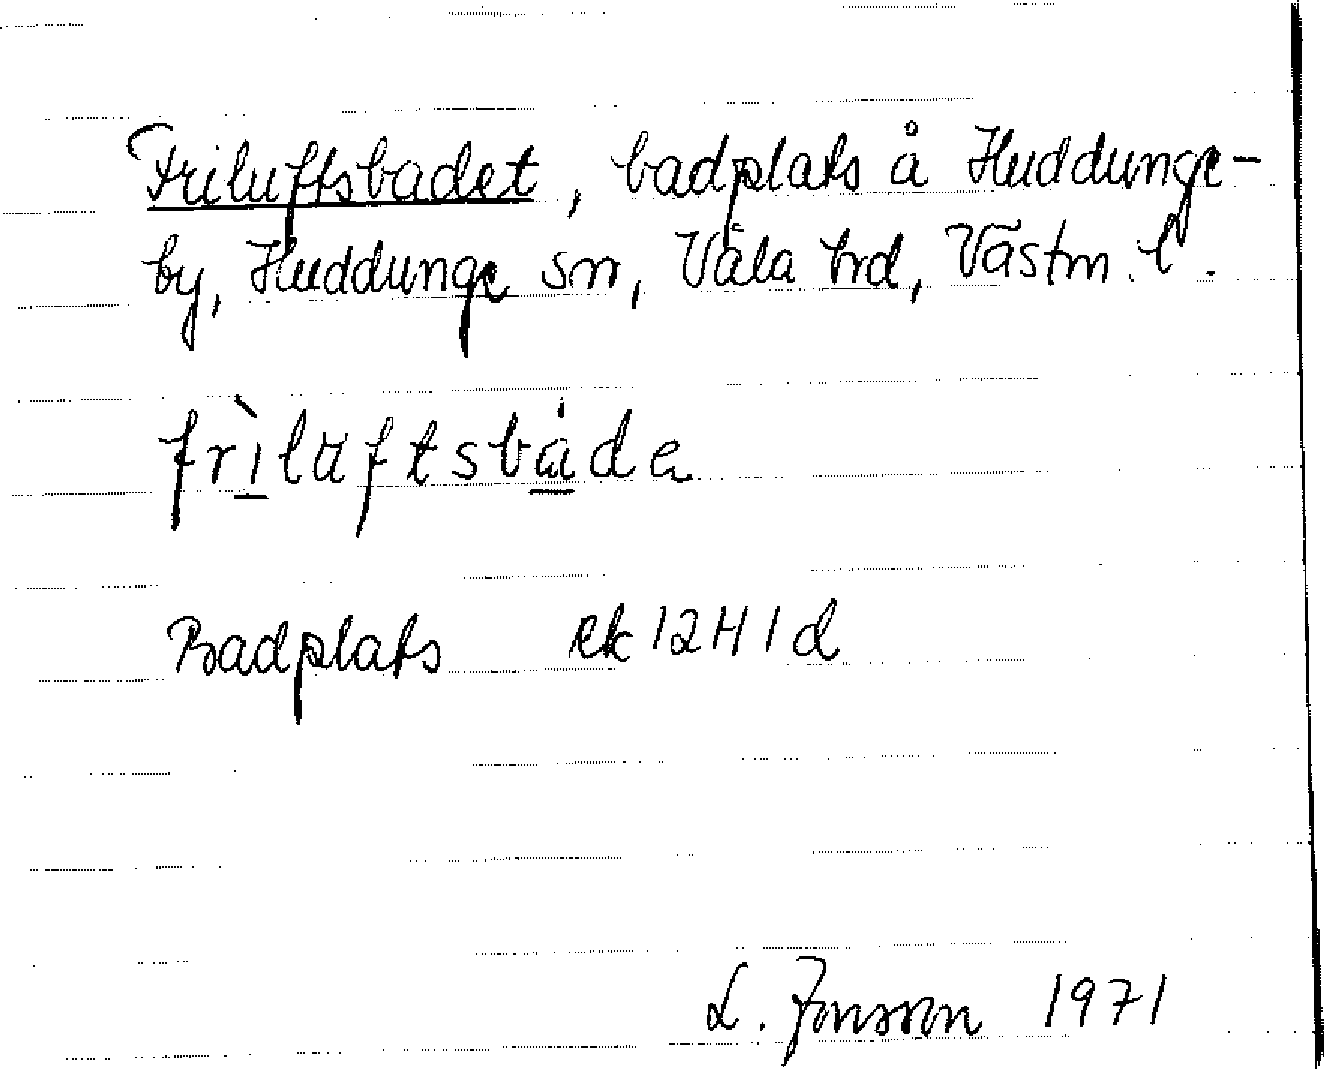 Friluftsbadet, badplats å Huddunge-
by, Huddunge sn, Våla hrd, Västm. l.
frìluftsbáda
Badplats ek 12H 1d
L. Jonsson 1971